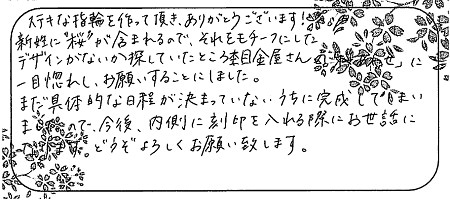 ステキな指輪を作って頂き、ありがとうございます!
新姓に"桜"が含まれるので、それをモチーフにした
デザインがないか探していたところ杢目金屋さんの」に
一目惚れし、お願いすることにしました。
まだ具体的な日程が決まっていないうちに完成してしまい
ましたので、今後、内側に刻印を入れる際にお世話に
なります。どうぞよろしくお願い致します。